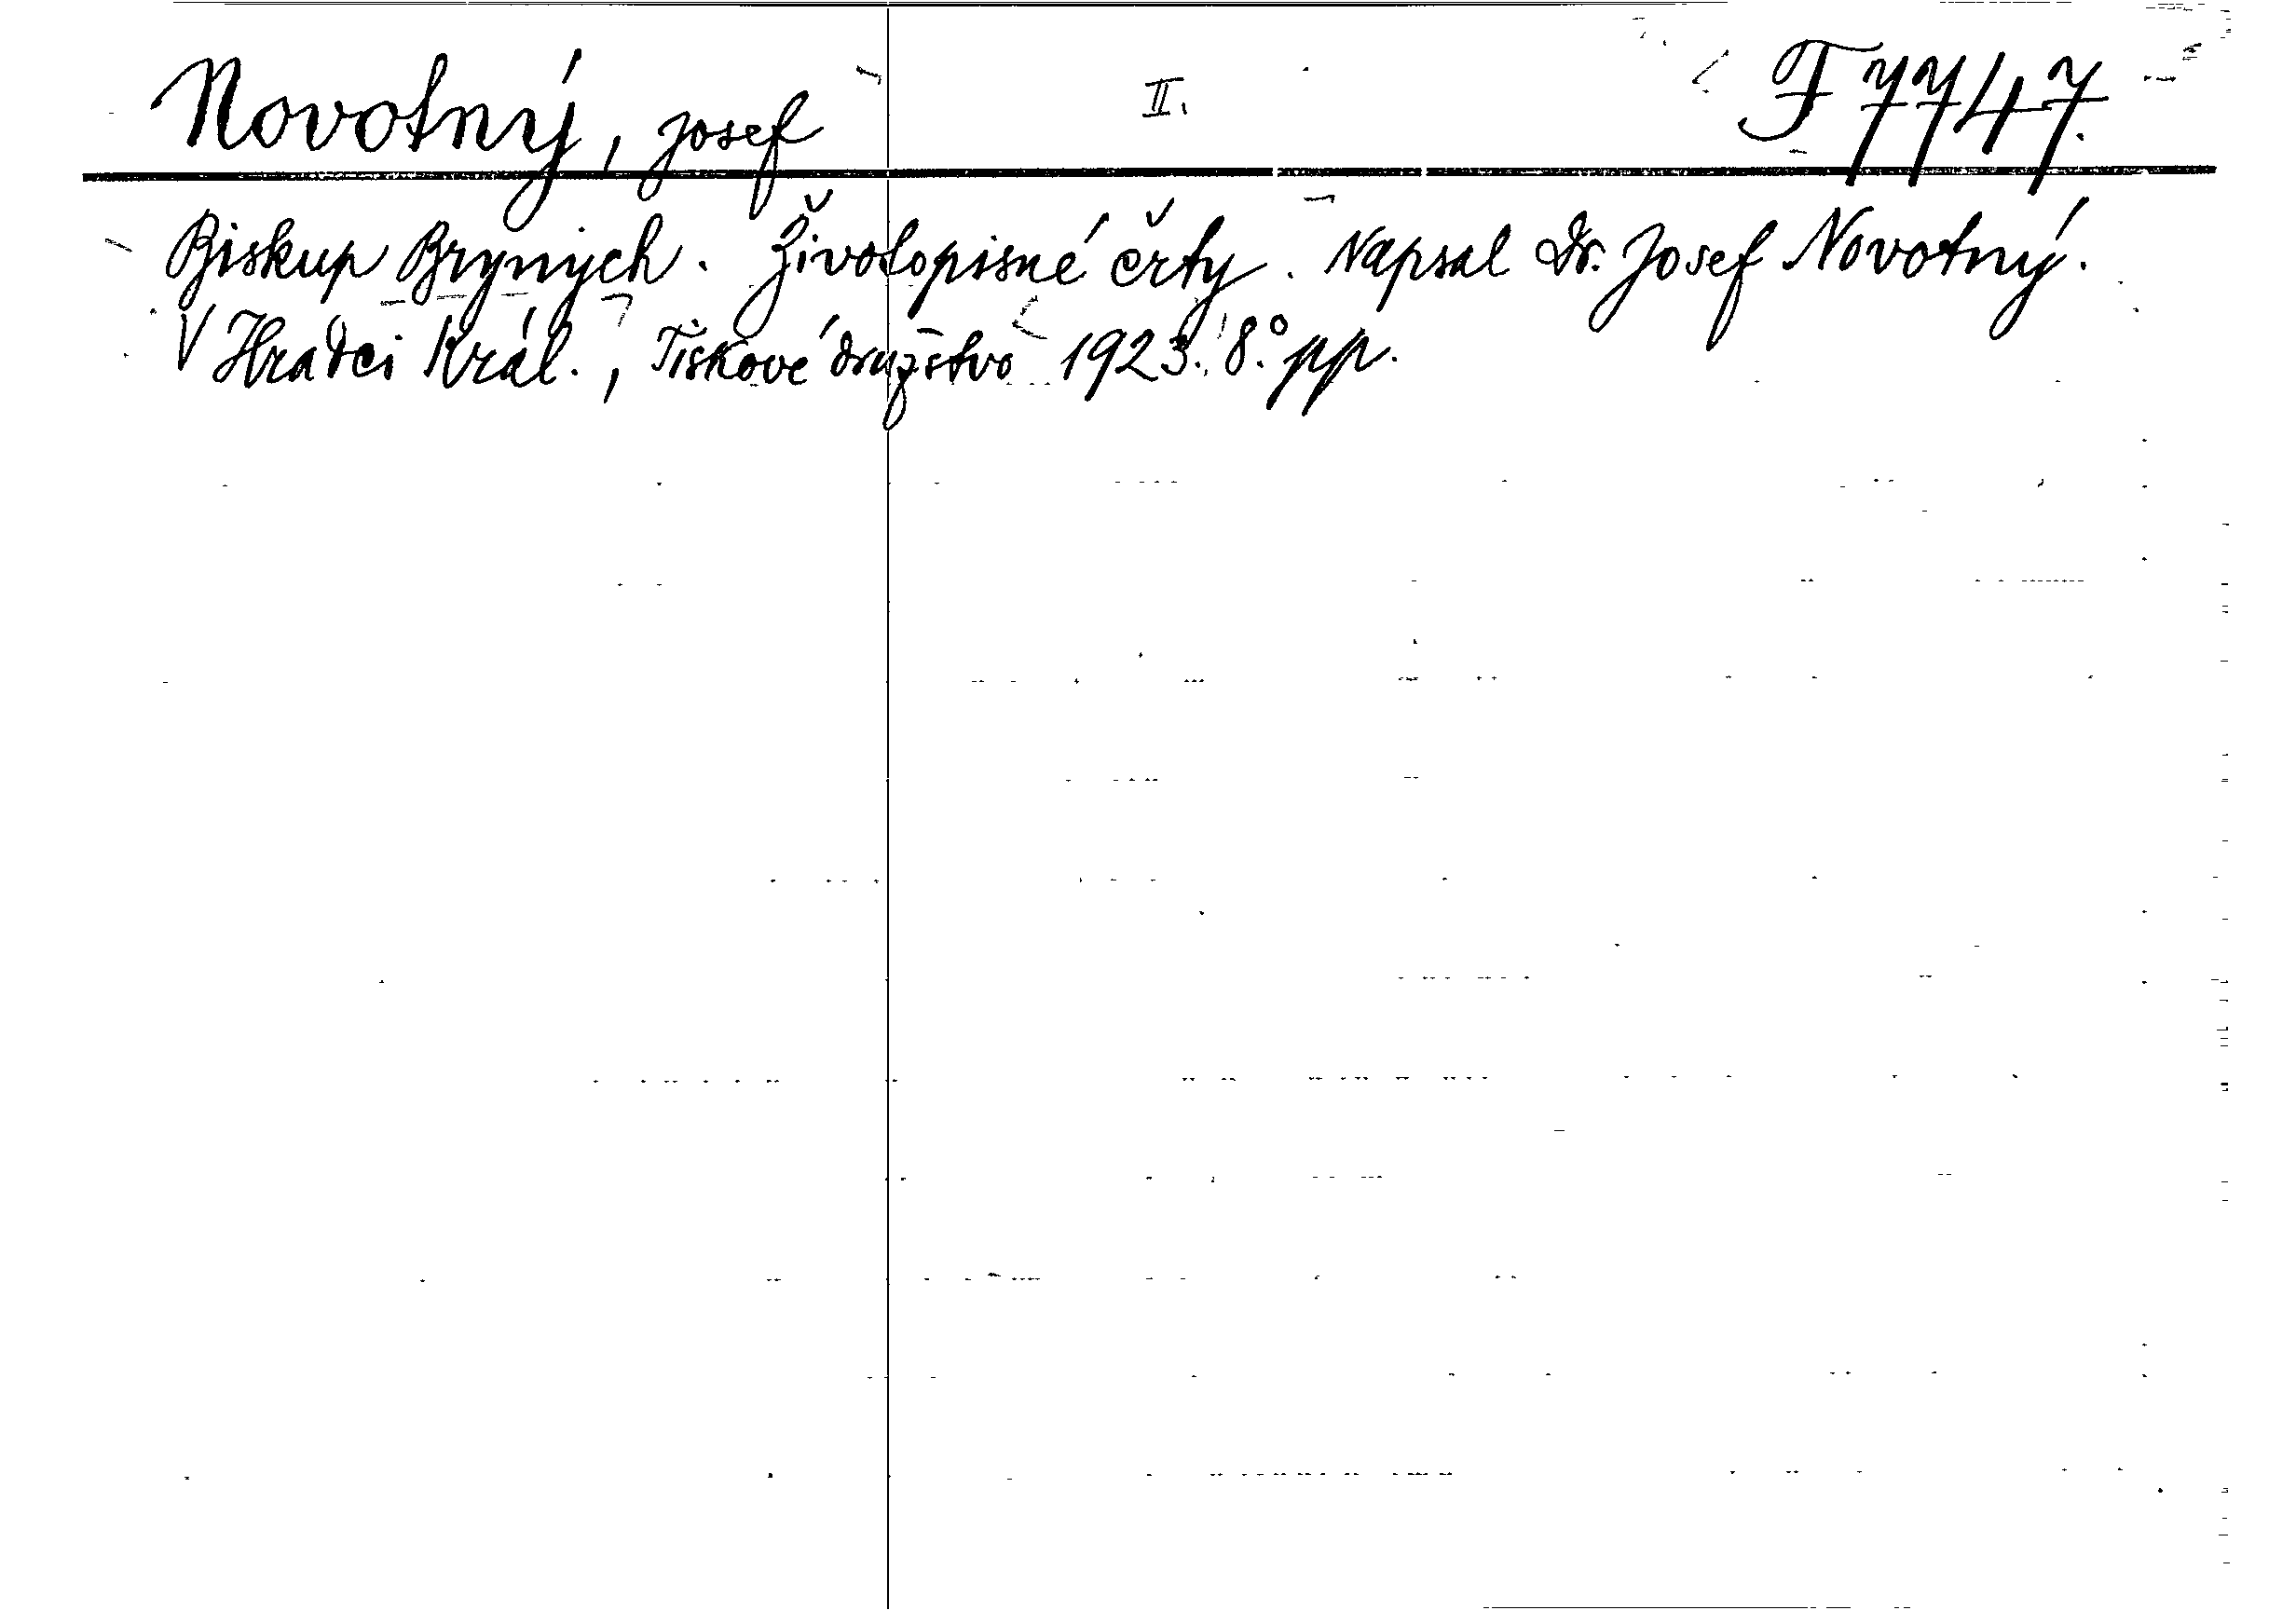 Novotný, Josef II. F 7747.
Biskup Brynych. Životopisné črty. Napsal Dr. Josef Novotný.
V Hradci Král., Tiskové družstvo 1923. 8.° pp.